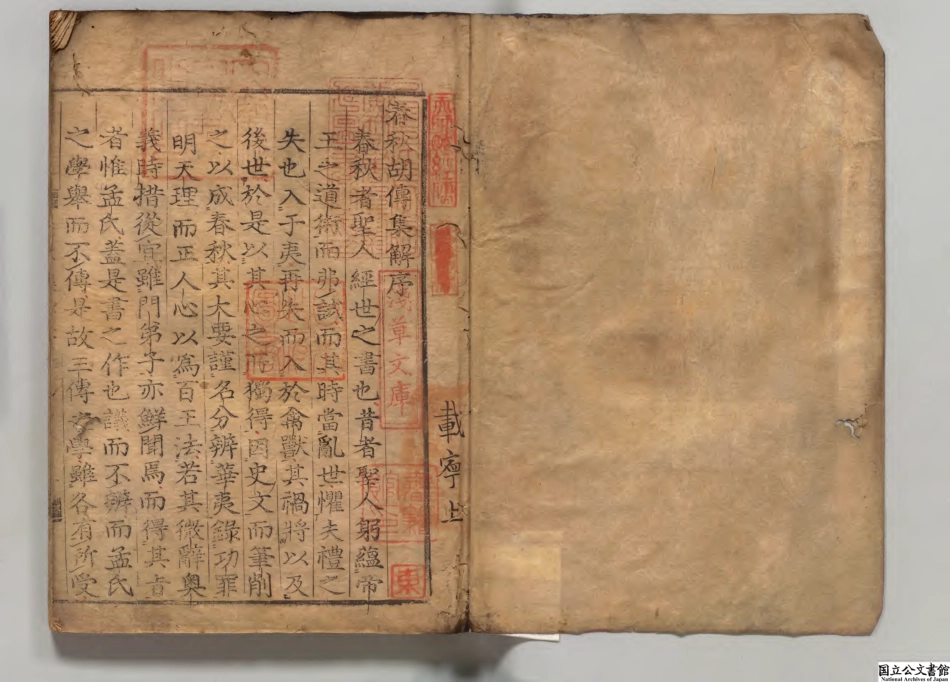 春秋胡傳集解序
春秋者聖人經世之書也昔者聖人躬蘊帝
王之道術而弗試而其時當亂世懼夫禮之
失也入于夷再失而入於禽獸其禍將以及
後世於是以其心之所獨得因史文而筆削
之以成春秋其大要謹名分辨華夷錄功罪
明天理而正人心以爲百王法若其微辭奧
義時措從宜雖門弟子亦鮮聞焉而得其旨
者惟孟氏蓋是書之作也議而不辯而孟氏
之學舉而不傳是故三傳之學雖各有所受
載寧上
淺草文庫
東
国立公文書館
National Archives of Japan